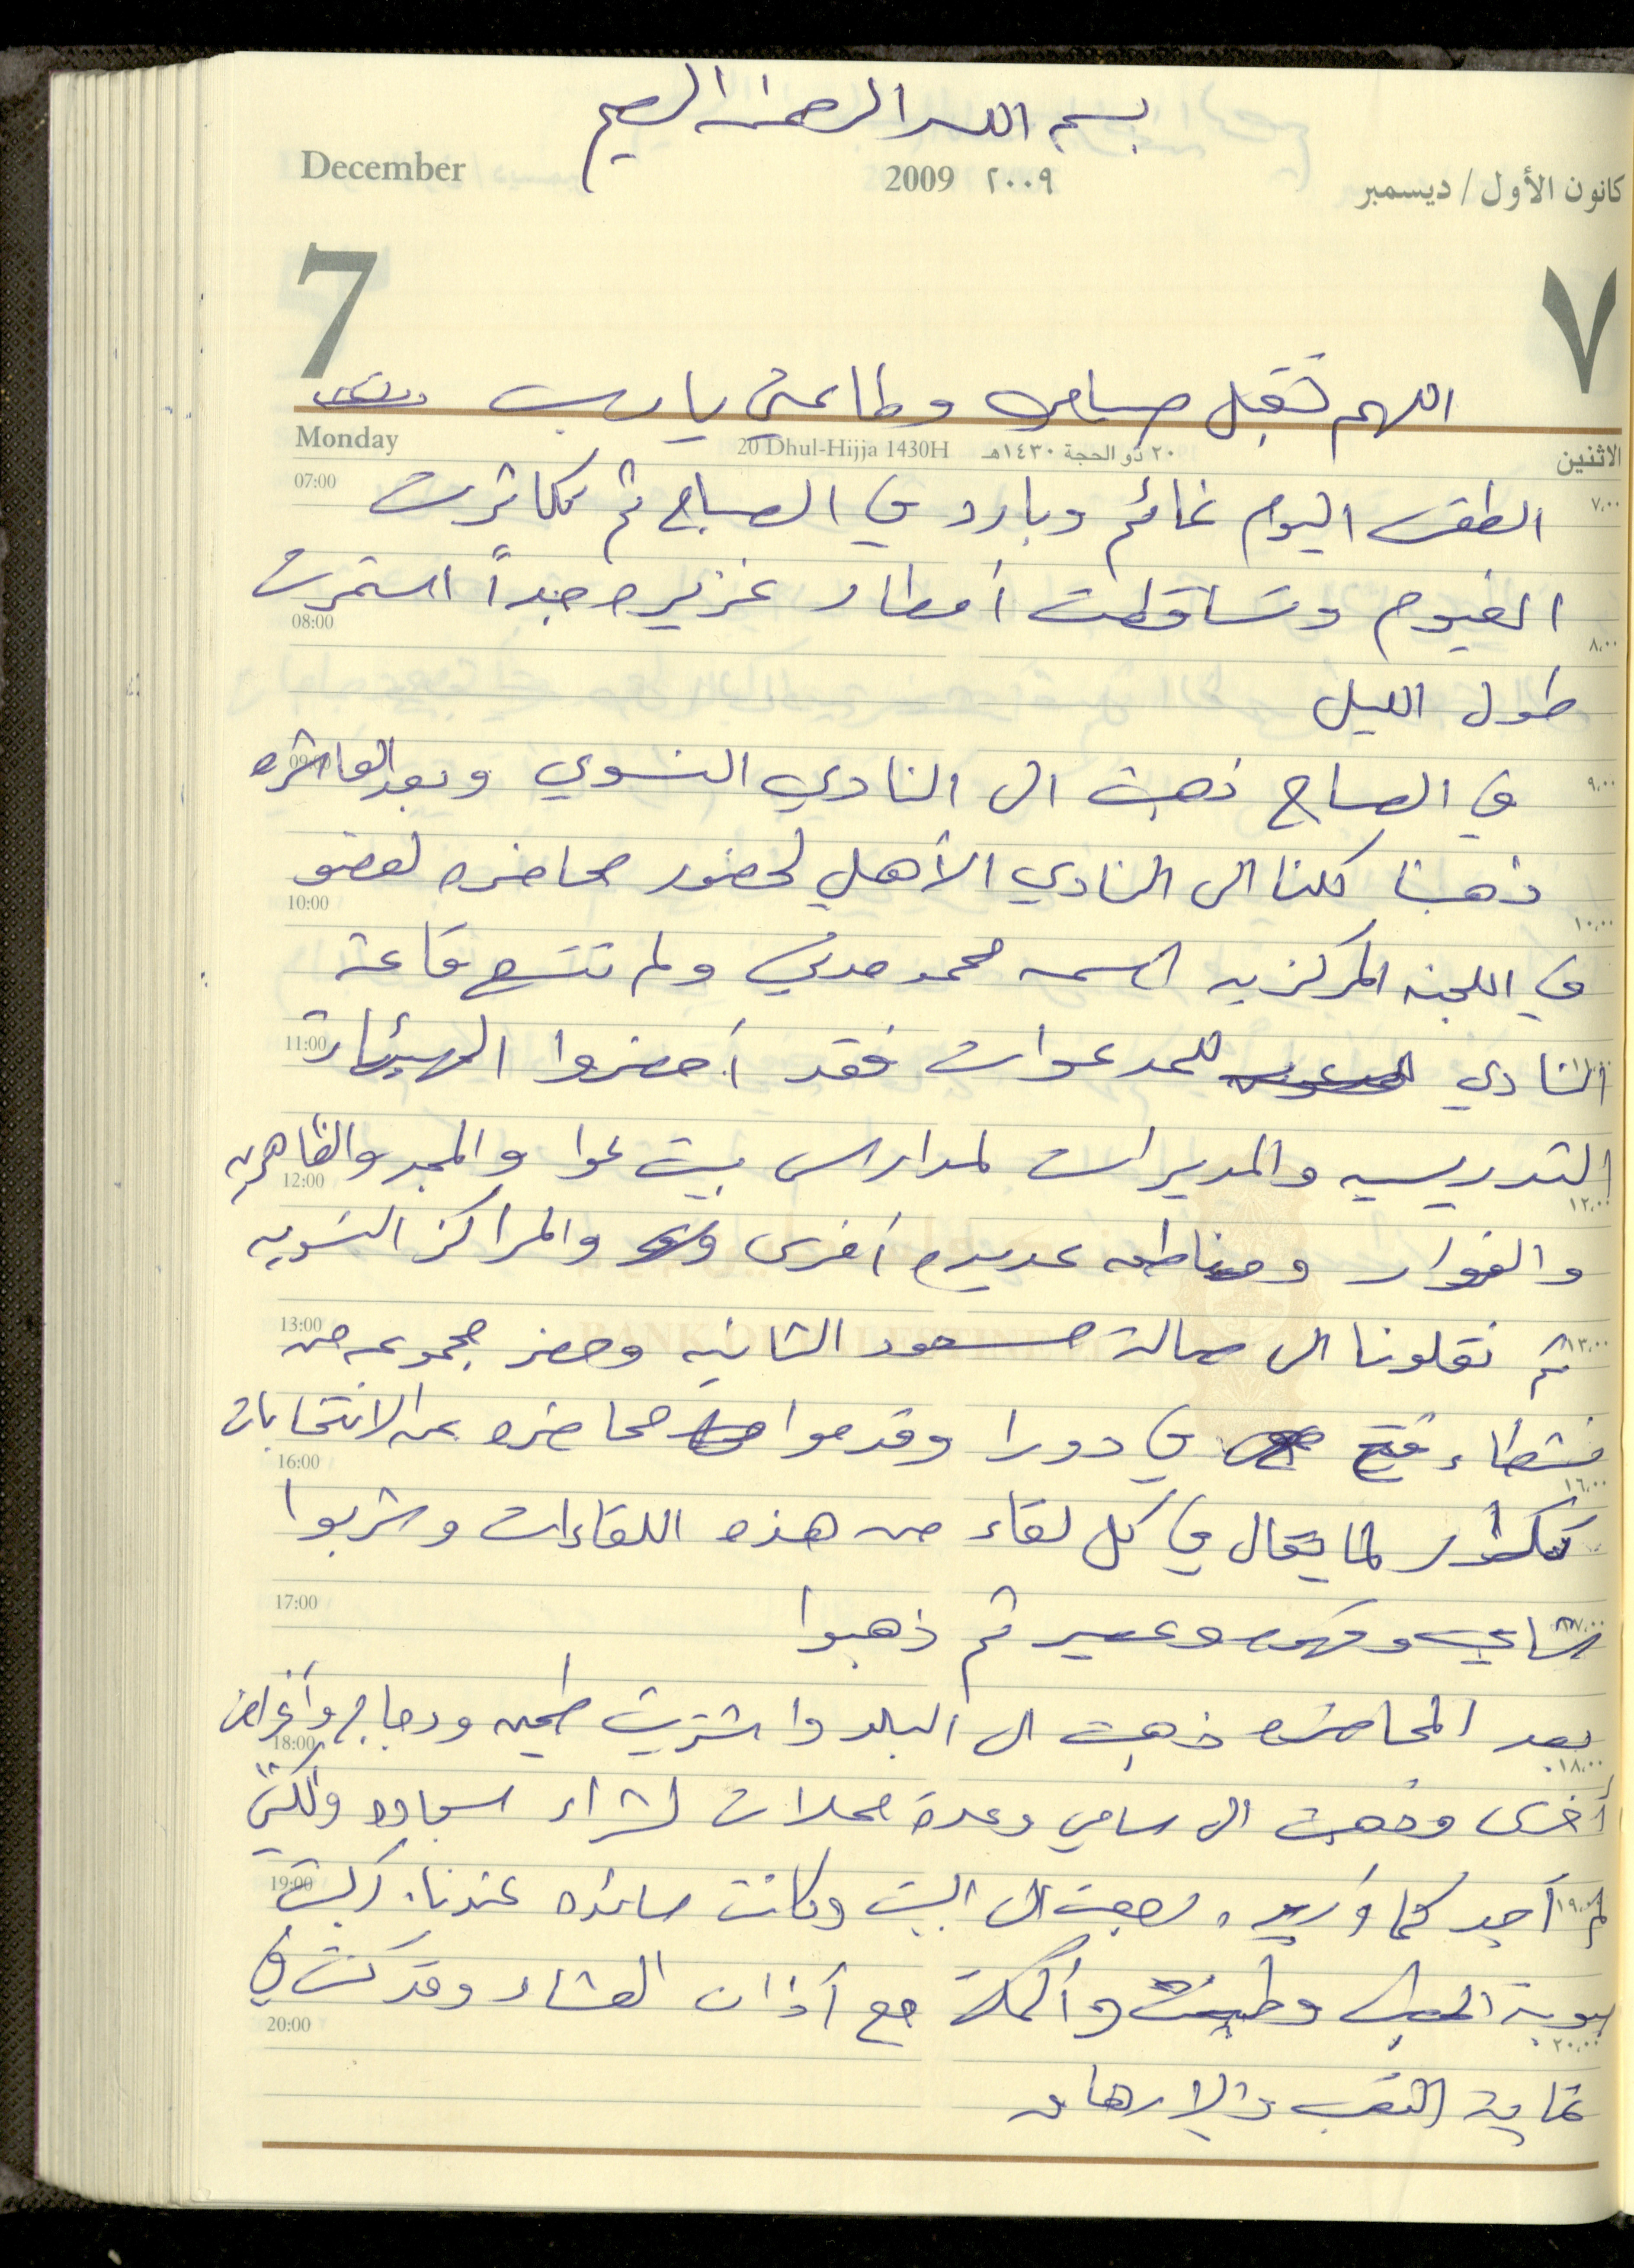 بسم الله الرحمن الرحيم
December 2009 ٢٠٠٩ كانون الأول / ديسمبر
7 ٧
اللهم تقبل صيامي وطاعتي يا رب
Monday 20 Dhul-Hijja 1430H ٢٠ ذو الحجة ١٤٣٠هـ الاثنين
07:00 ٧،٠٠
الطقس اليوم غائم وبارد في الصباح ثم تكاثرت
الغيوم وتساقطت أمطار غزيره جداً استمرت
08:00 ٨،٠٠
طول الليل
في الصباح ذهبت الى النادي النسوي وبعد العاشره
09:00 ٩،٠٠
ذهبنا كلنا الى النادي الأهلي لحضور محاضره لعضو
10:00 ١٠،٠٠
في اللجنه المركزيه اسمه محمد مدني ولم تتسع قاعة
النادي للمدعوات فقد أحضروا الهيئات
11:00
التدريسيه والمديرات لمدارس بيت عوا والمجد والظاهريه
12:00 ١٢،٠٠
والفوار ومناطق عديده أخرى والمراكز النسويه
ثم نقلونا الى صالة مسعود الثانيه وحضر مجموعه من
13:00 ١٣،٠٠
BANK OF PALESTINE
نشطاء فتح في دورا وقدموا محاضره عن الانتخابات
16:00 ١٦،٠٠
تكرار لما يقال في كل لقاء من هذه اللقاءات وشربوا
شاي وقهوه وعصير ثم ذهبوا
17:00 ١٧،٠٠
بعد المحاضره ذهبت الى البلد واشتريت طحين ودجاج وأغراض
18:00 ١٨،٠٠
أخرى وذهبت الى سامي وعدة محلات لشراء سجاده ولكني
لم أجد كما أريد. رجعت الى البيت وكانت مائده عندنا.
19:00 ١٩،٠٠
وأكملت مع آذان العشاء وقد كنت في
20:00 ٢٠،٠٠
غاية التعب والإرهاق